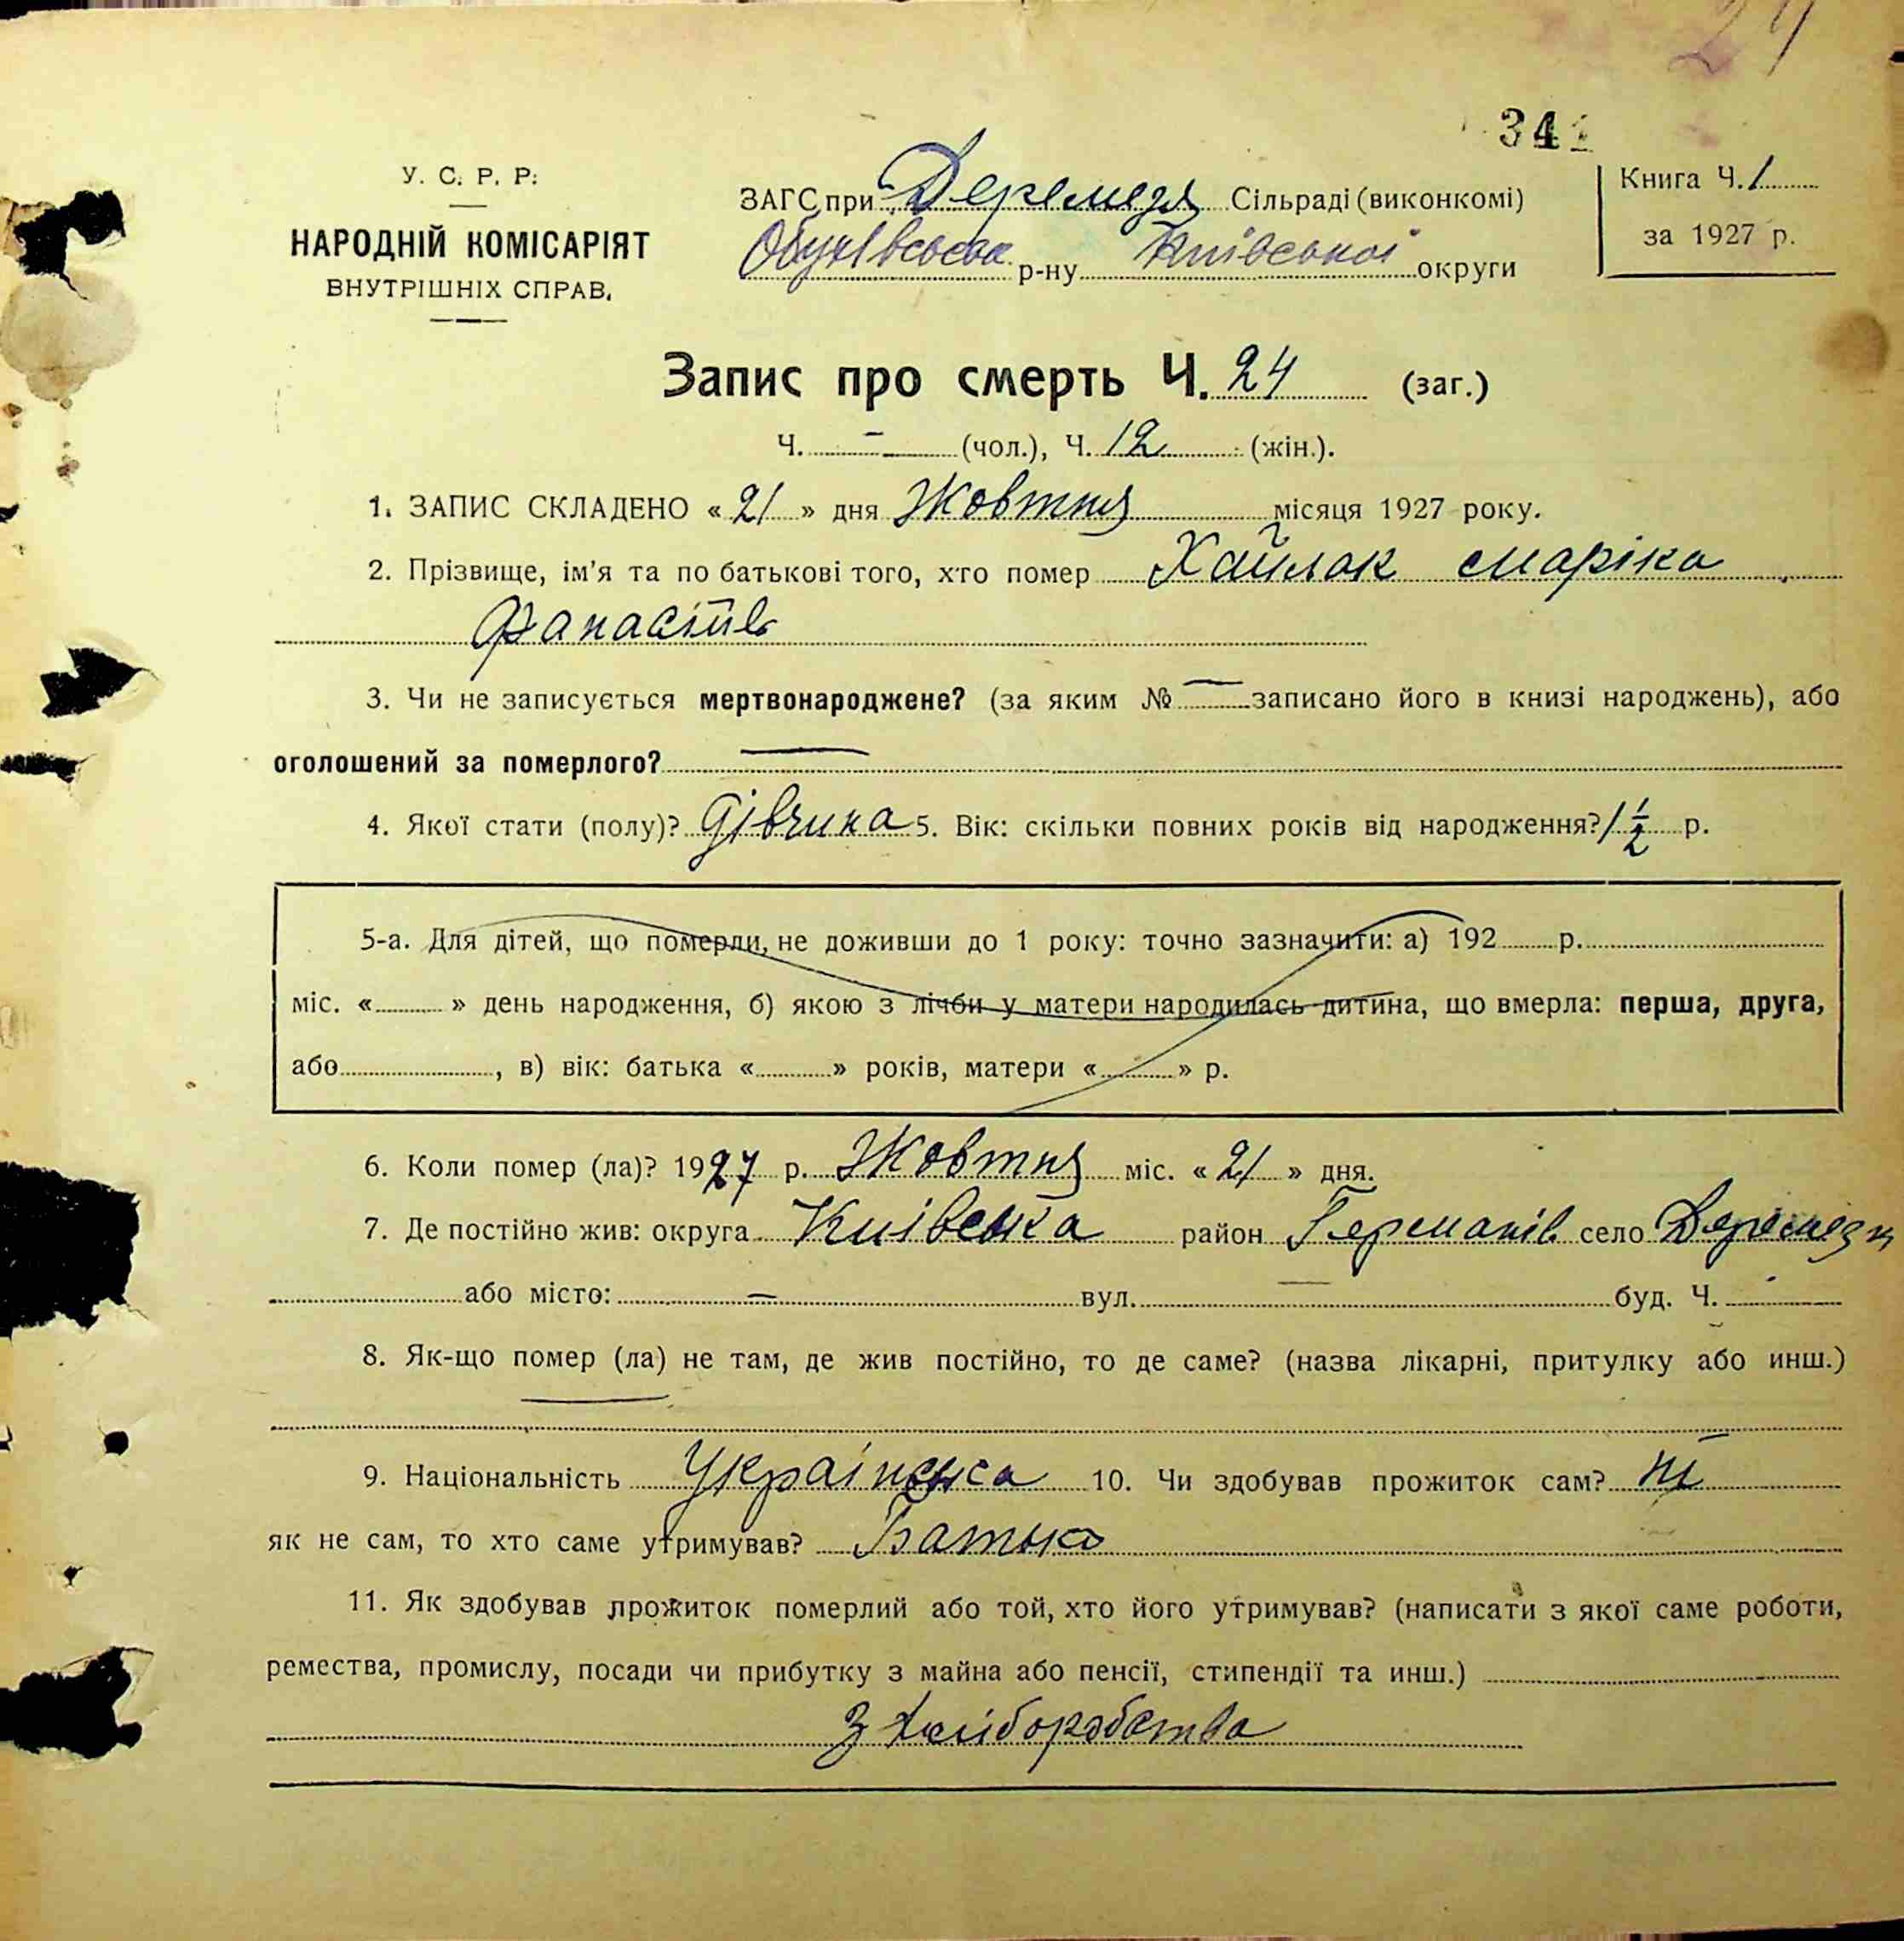 24
341
У. С. Р. Р.
НАРОДНІЙ КОМІСАРІЯТ
ВНУТРІШНІХ СПРАВ.
ЗАГС при Деремезя Сільраді (виконкомі)
Обухівська р-ну Київської округи
Книга Ч. 1
за 1927 р.
Запис про смерть Ч. 24 (заг.)
Ч. – (чол.), Ч. 12 (жін.).
1. ЗАПИС СКЛАДЕНО « 21 » дня Жовтня місяця 1927 року.
2. Прізвище, ім'я та по батькові того, хто помер Хайлак Маріка
Фанасіїв
3. Чи не записується мертвонароджене? (за яким № — записано його в книзі народжень), або
оголошений за померлого? —
4. Якої стати (полу)? Дівчина 5. Вік: скільки повних років від народження? 1 1/2 р.
5-а. Для дітей, що померли, не доживши до 1 року: точно зазначити: а) 192 р.
міс. « » день народження, б) якою з лічби у матери народилась дитина, що вмерла: перша, друга,
або , в) вік: батька « » років, матери « » р.
6. Коли помер (ла)? 1927 р. Жовтня міс. « 21 » дня.
7. Де постійно жив: округа Київська район Германів село Деремезя
або місто: — вул. — буд. Ч.
8. Як-що помер (ла) не там, де жив постійно, то де саме? (назва лікарні, притулку або инш.)
—
9. Національність Українська 10. Чи здобував прожиток сам? ні
як не сам, то хто саме утримував? Батько
11. Як здобував прожиток померлий або той, хто його утримував? (написати з якої саме роботи,
ремества, промислу, посади чи прибутку з майна або пенсії, стипендії та инш.)
З хліборобства